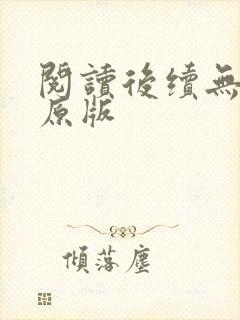 閱讀後續無
原版
傾落塵